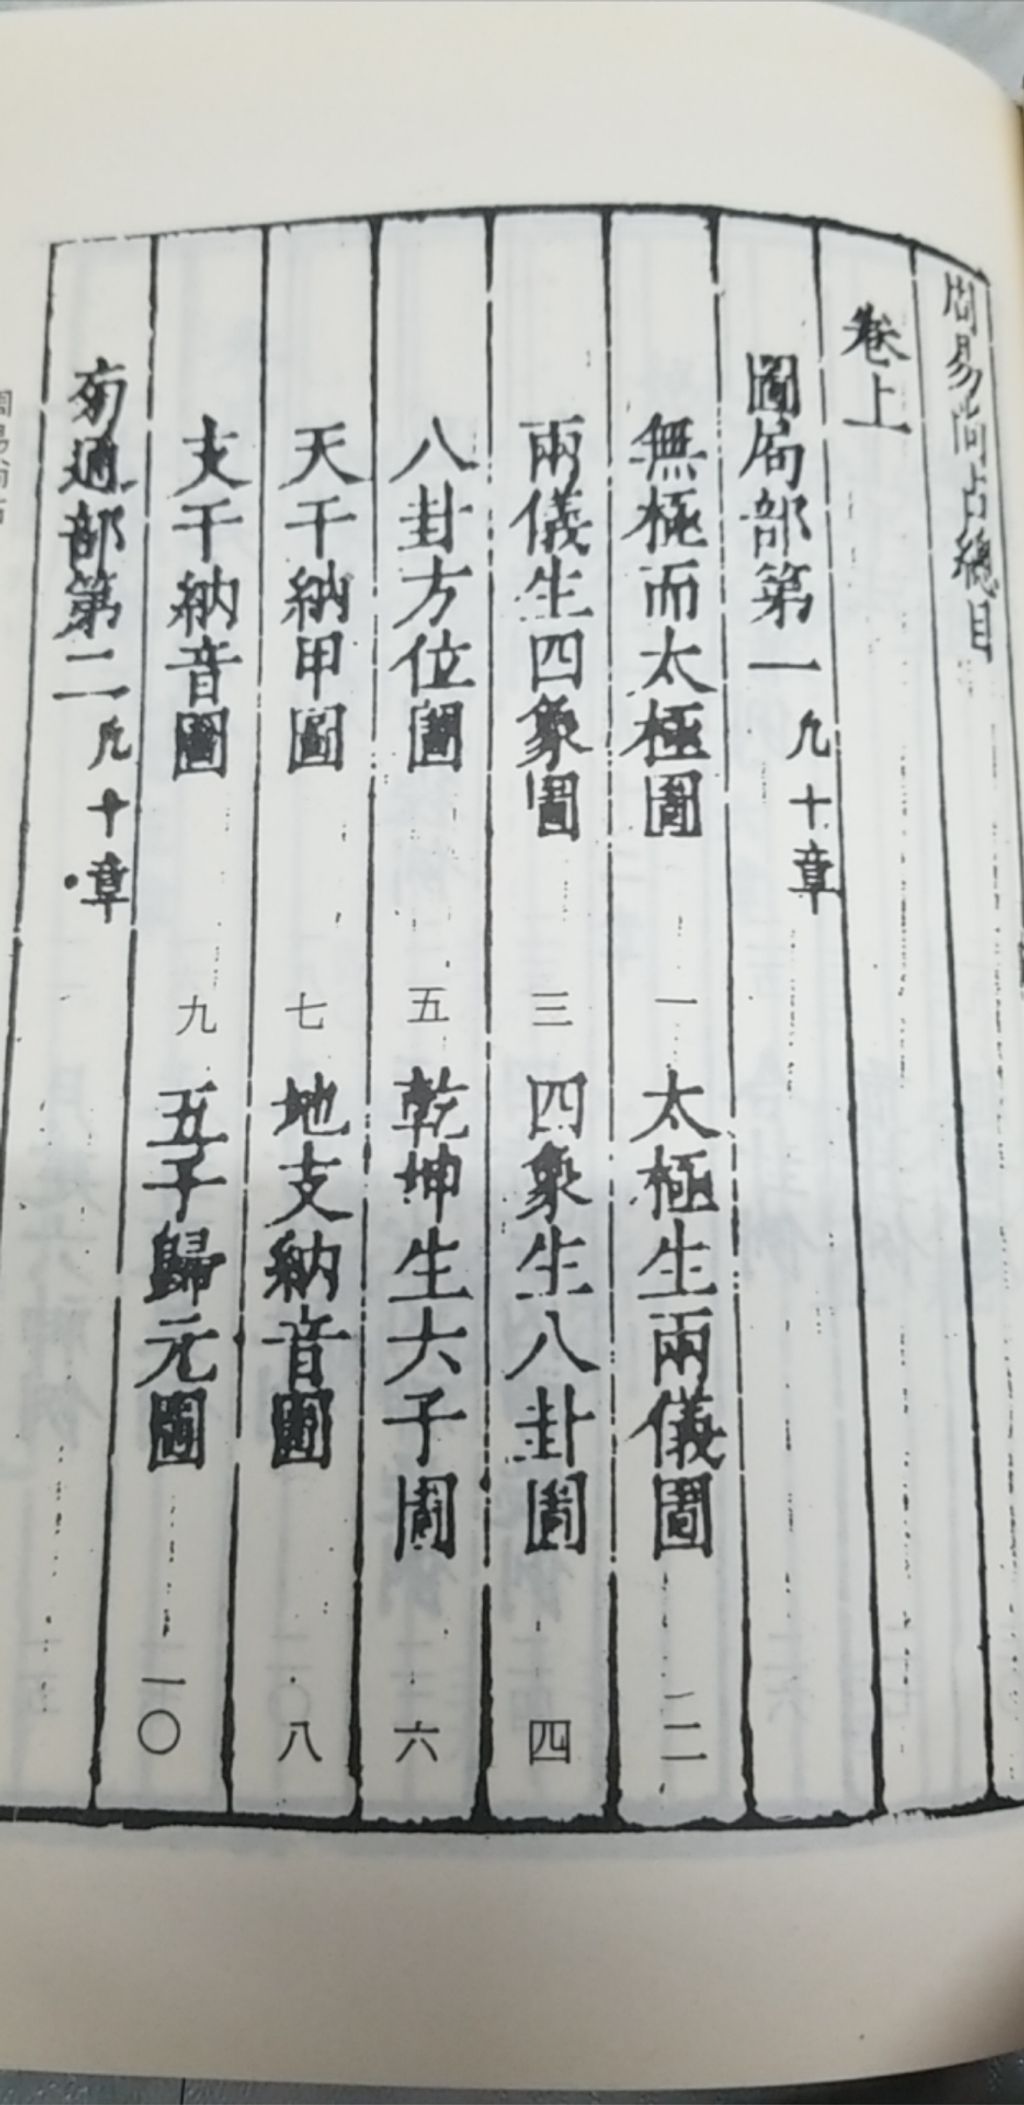 周易尚占總目
卷上
圖局部第一 凡十章
無極而太極圖 一 太極生兩儀圖 二
兩儀生四象圖 三 四象生八卦圖 四
八卦方位圖 五 乾坤生六子圖 六
天干納甲圖 七 地支納音圖 八
支干納音圖 九 五子歸元圖 一〇
旁通部第二 凡十章
周易尚占